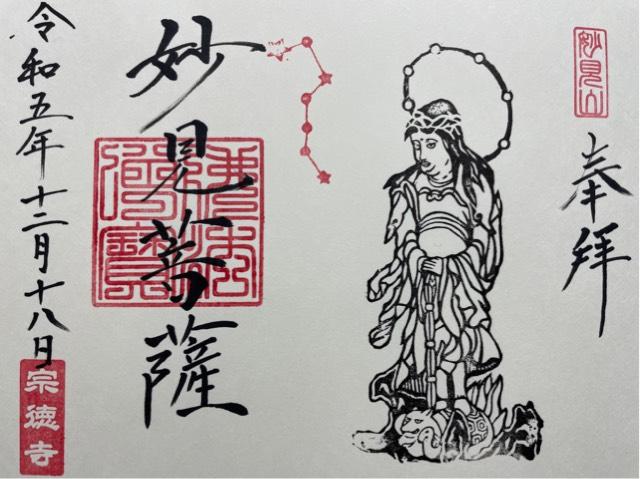 妙見山
奉拝
妙見菩薩
令和五年十二月十八日
宗徳寺